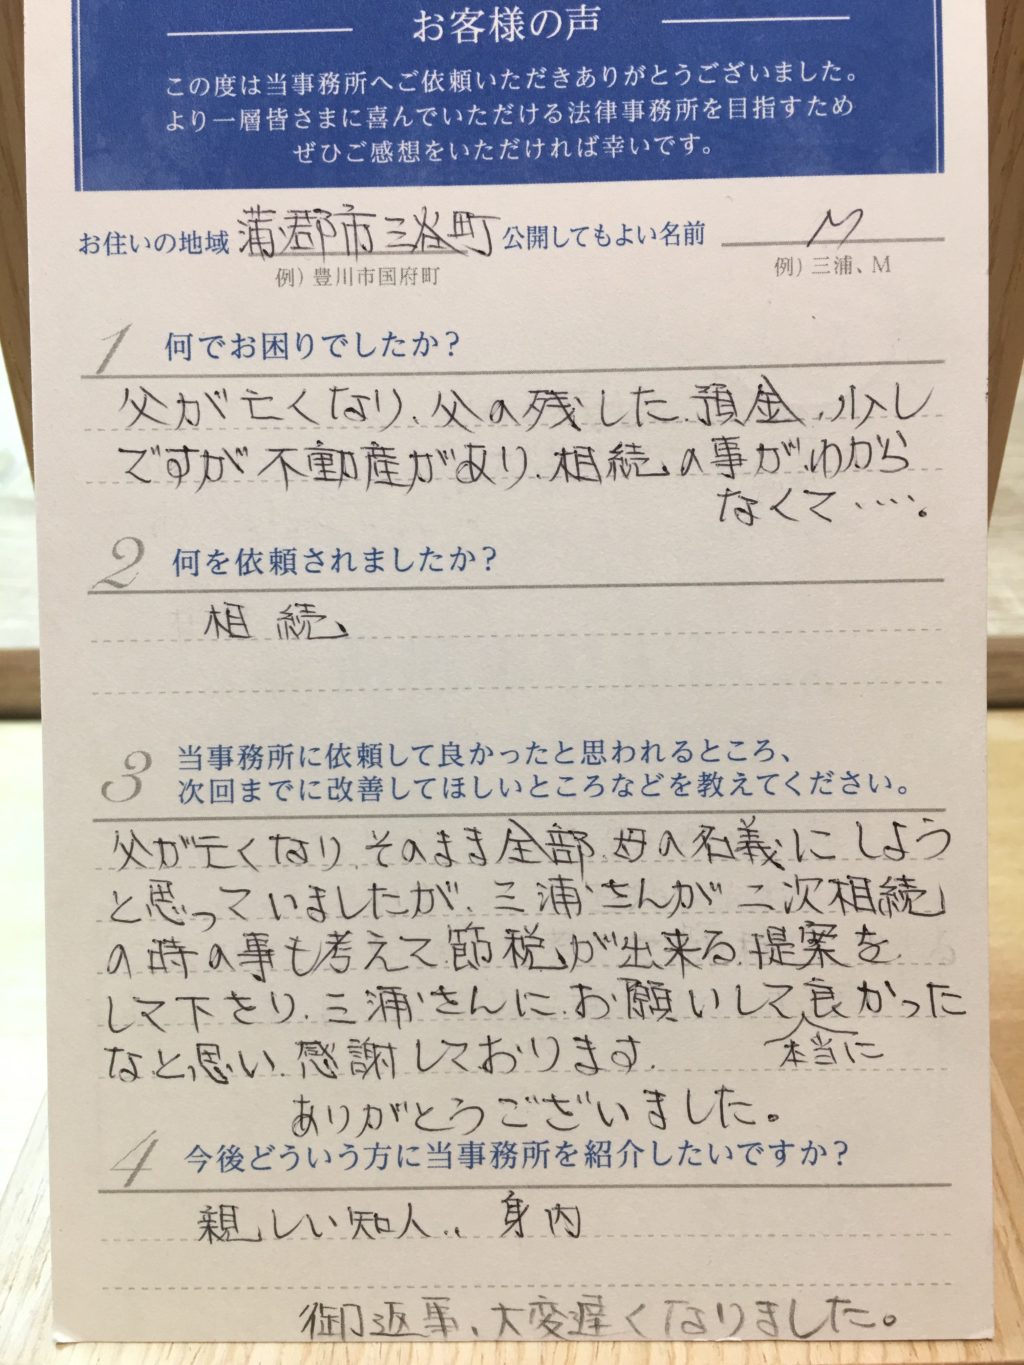 お客様の声
この度は当事務所へご依頼いただきありがとうございました。
より一層皆さまに喜んでいただける法律事務所を目指すため
ぜひご感想をいただければ幸いです。
お住いの地域 蒲郡市三谷町 公開してもよい名前 M
例）豊川市国府町 例）三浦、M
1 何でお困りでしたか？
父が亡くなり、父の残した預金、少し
ですが不動産があり、相続の事がわから
なくて・・・・。
2 何を依頼されましたか？
相続
3 当事務所に依頼して良かったと思われるところ、
次回までに改善してほしいところなどを教えてください。
父が亡くなり、そのまま全部、母の名義にしよう
と思っていましたが、三浦さんが二次相続
の時の事も考えて節税が出来る提案を
して下さり、三浦さんに、お願いして良かった
本当に
なと思い、感謝しております。
ありがとうございました。
4 今後どういう方に当事務所を紹介したいですか？
親しい知人、、身内
御返事、大変遅くなりました。